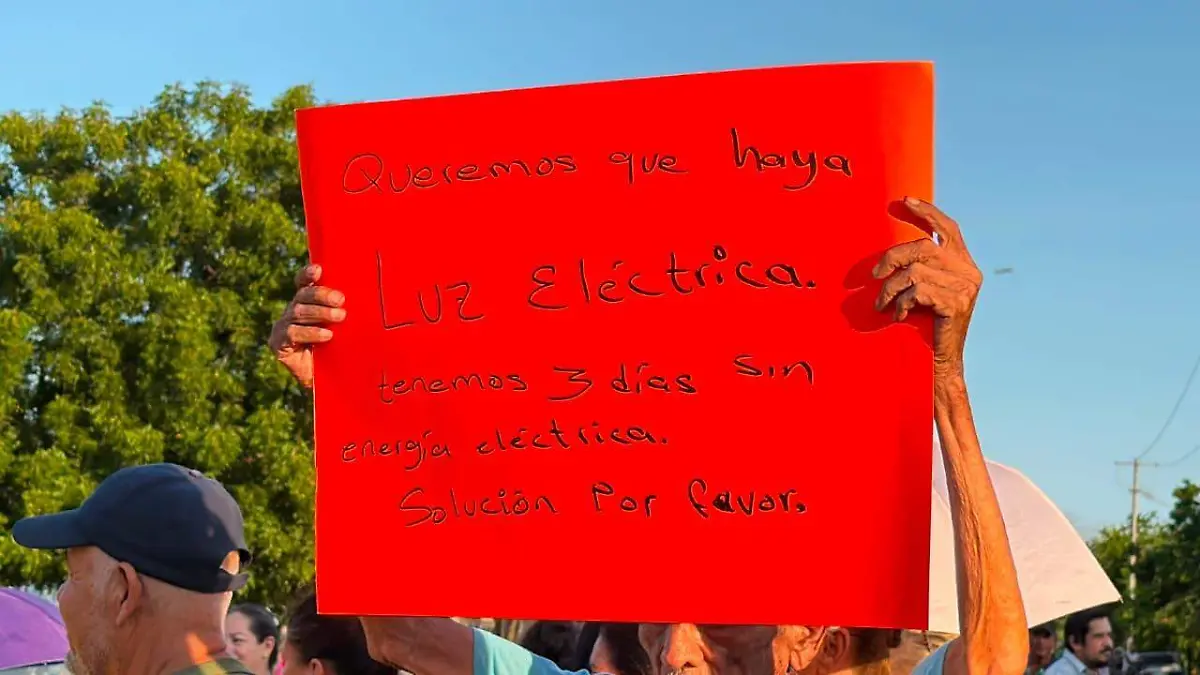 Queremos que haya
Luz Eléctrica.
tenemos 3 días sin
energía eléctrica.
Solución Por favor.